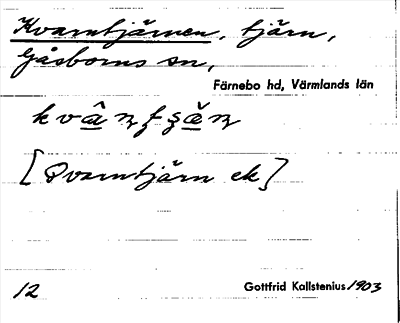 Kvarntjärnen, tjärn,
Gåsborns sn,
Färnebo hd, Värmlands län
[Qvarntjärn ek]
12 Gottfrid Kallstenius 1903